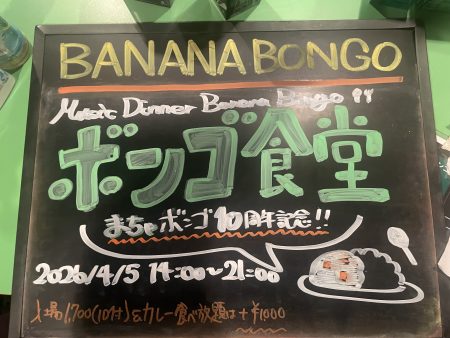 BANANA BONGO
Music Dinner Banana Bongo !!
ボンゴ食堂
まちゃボンゴ10周年記念!!
2026/4/5 14:00〜21:00
入場1,700(1D付)&カレー食べ放題は+¥1000